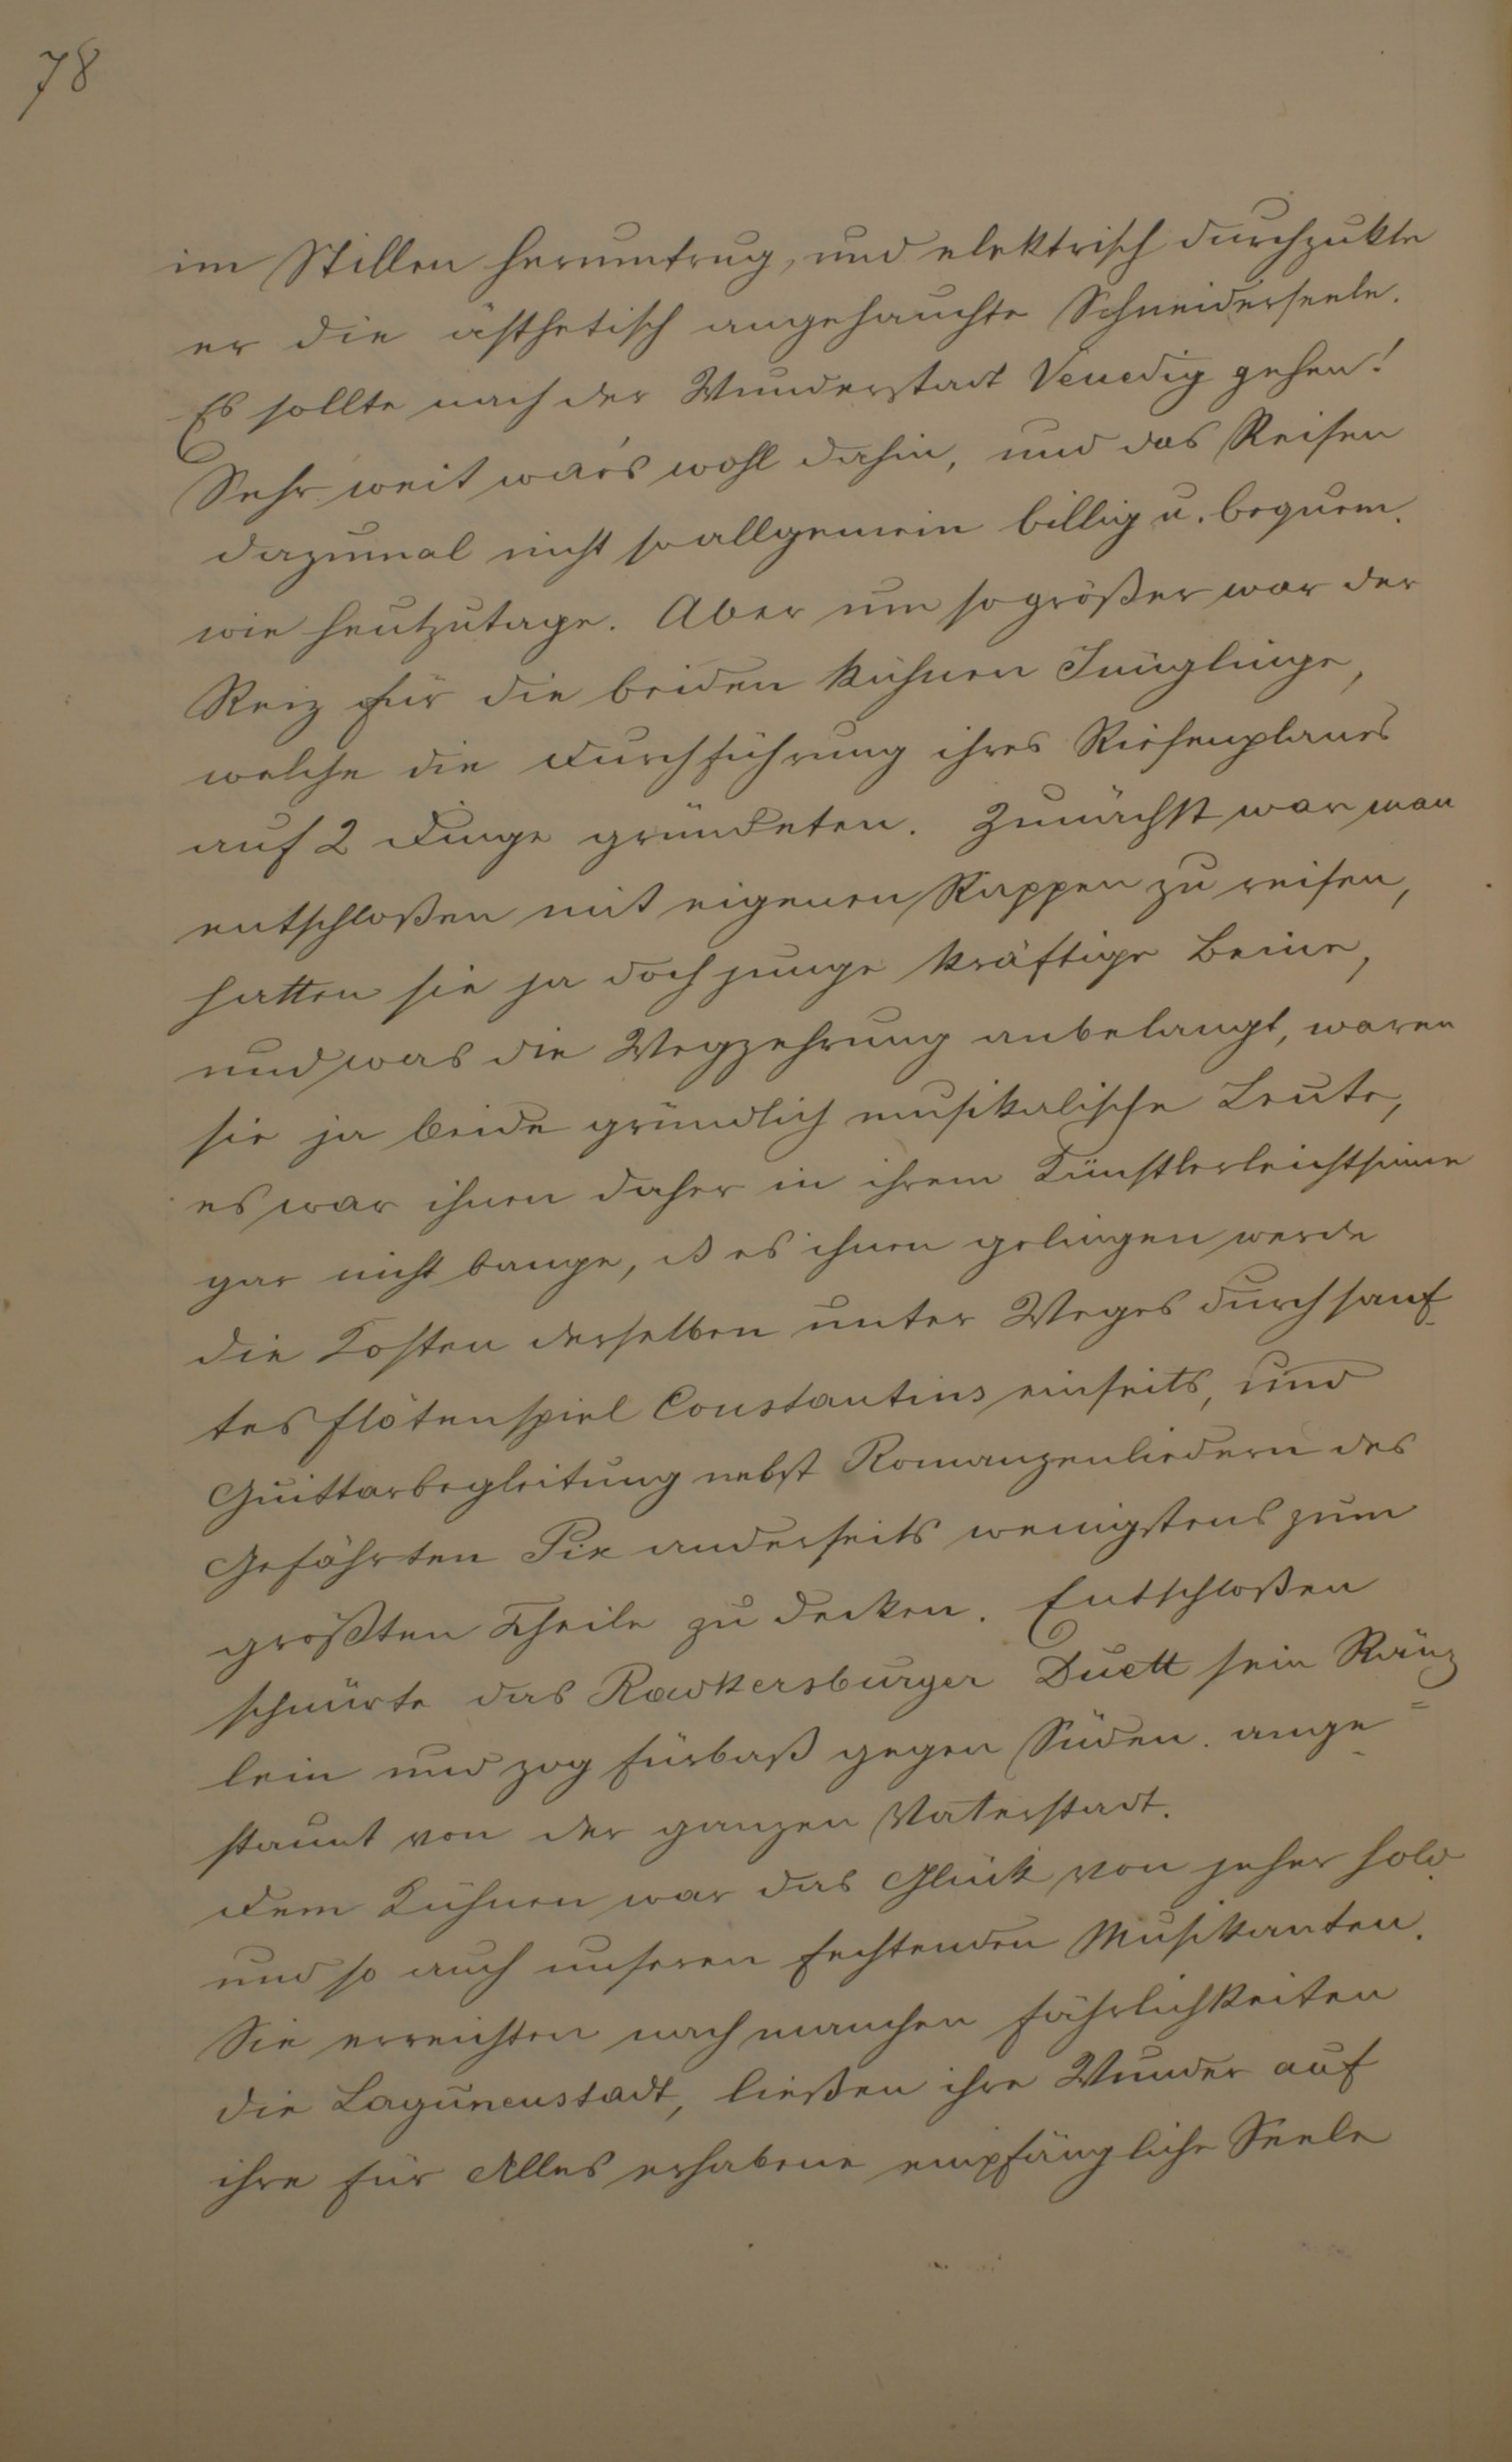 78
im Stillen herumtrug, und elektrisch durchzukte
er die ästhetisch angehauchte Schneiderseele.
Es sollte nach der Wunderstadt Venedig gehen!
Sehr weit war's wohl dahin, und das Reisen
dazumal nicht so allgemein billig u. bequem.
wie heutzutage. Aber um so größer war der
Reiz für die beiden kühnen Jünglinge,
welche die Durchführung ihres Riesenplanes
auf 2 Dinge gründeten. Zunächst war man
entschloßen mit eigenen Rappen zu reisen,
hatten sie ja doch junge kräftige Beine,
und was die Wegzehrung anbelangt, waren
sie ja beide gründlich musikalische Leute,
es war ihnen daher in ihrem Künstlerleichtsinne
gar nicht bange, ß es ihnen gelingen werde
die Kosten derselben unter Weges durch sanf-
tes Flötenspiel Constantins einseits, und
Guittarbegleitung nebst Romanzenliedern des
Gefährten Pix anderseits wenigstens zum
größten Theile zu decken. Entschloßen
schnürte das Radkersburger Duett sein Ränz
lein und zog fürbaß gegen Süden. ange=
staunt von der ganzen Vaterstadt.
Dem Kühnen war das Glück von jeher hold
und so auch unseren fechtenden Musikanten.
Sie erreichten nach manchen Fährlichkeiten
die Lagunenstadt, ließen ihre Wunder auf
ihre für Alles erhabene empfängliche Seele